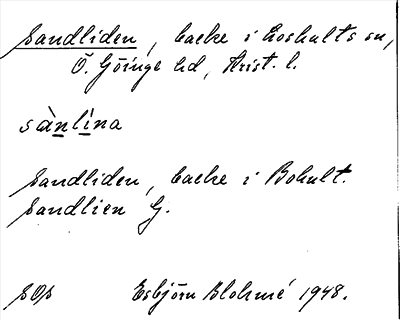 Sandliden, backe i Loshults sn,
Ö. Göinge hd, Krist. l.
sànlìna
Sandliden, backe i Bohult.
Sandlien G.
SOS Esbjörn Blohmé 1948.